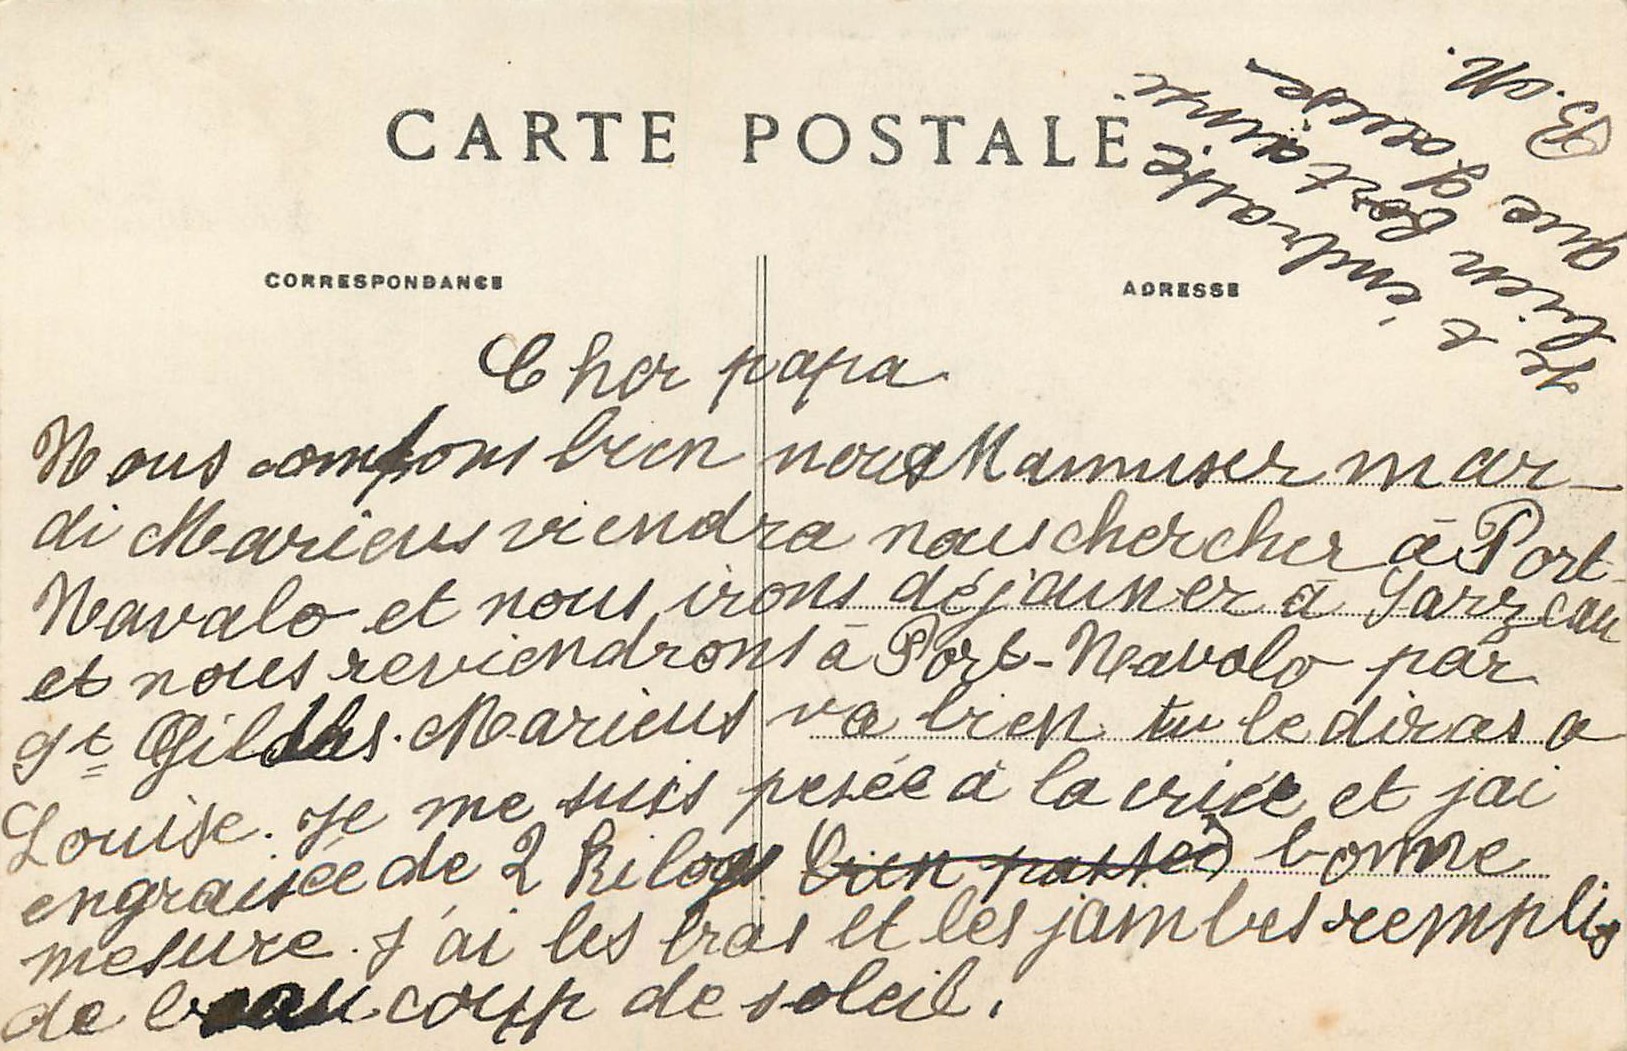 CARTE POSTALE
CORRESPONDANCE
ADRESSE
Cher papa
Nous comptons bien nous amuser mar-
di Marieus viendra nous chercher à Port-
Navalo et nous irons déjauner à Sarzeau
et nous reviendrons à Port-Navalo par
St Gildas. Marieus va bien tu le diras a
Louise. Je me suis pesée à la criée et jai
engraisée de 2 kilogs bien passés bonne
mesure. J'ai les bras et les jambes remplis
de beaucoup de soleil.
Je t'embrasse
bien fort ainsi
que Louise
B. M.